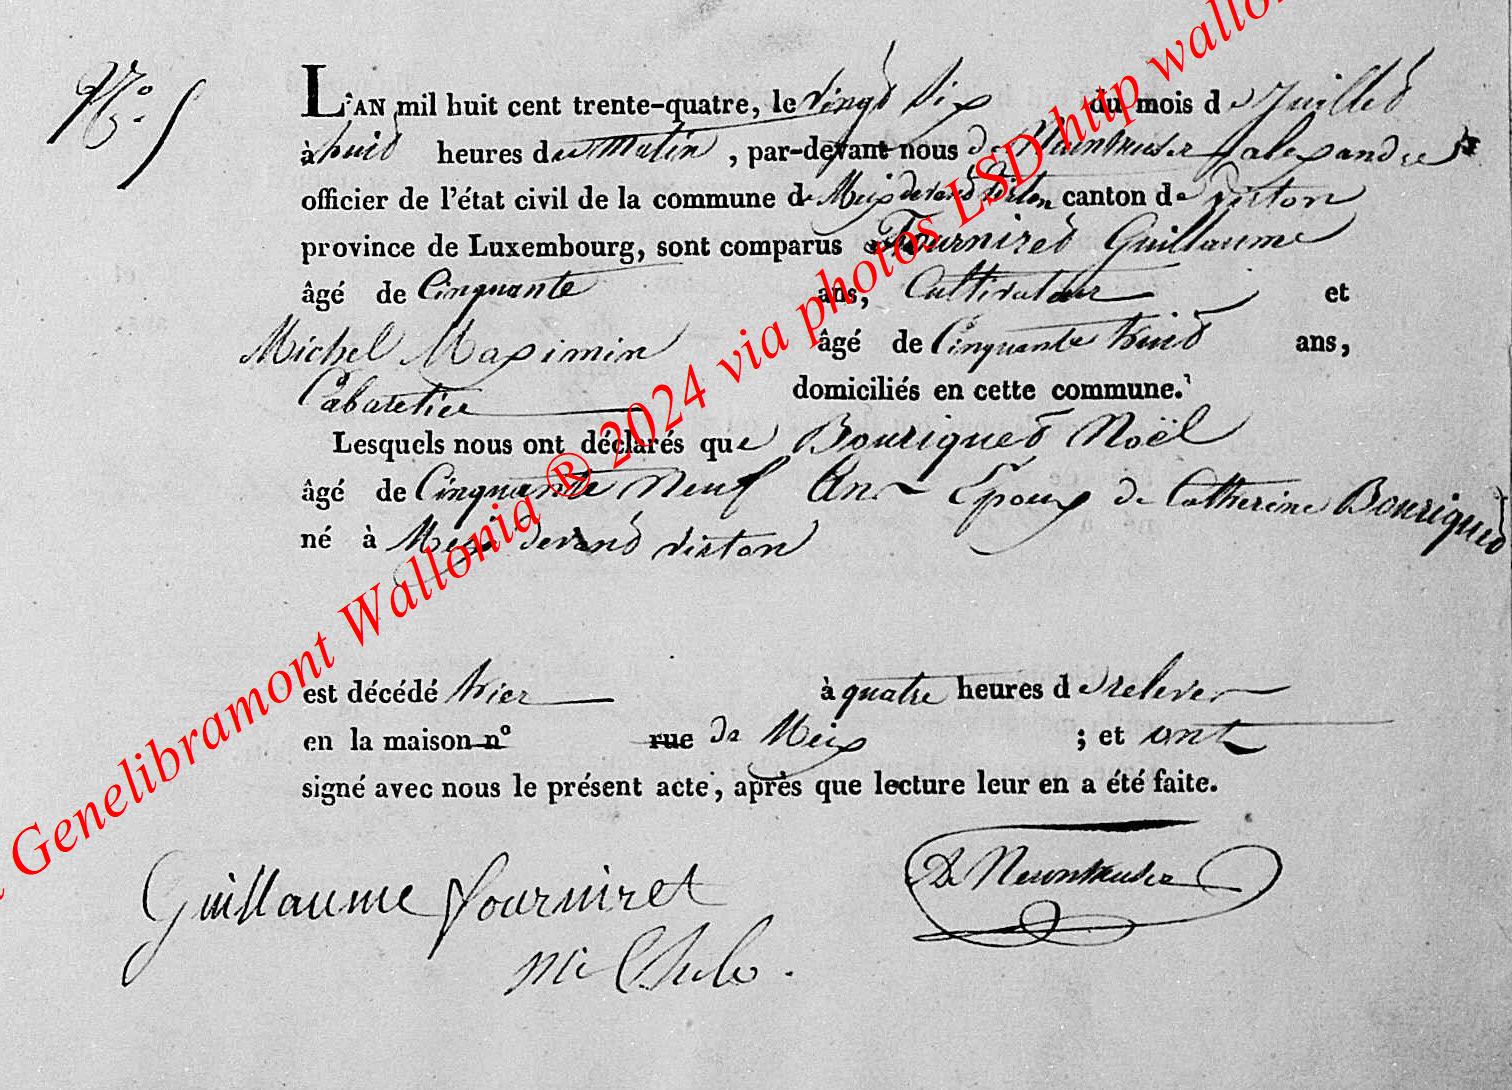 N.o 5
L'AN mil huit cent trente-quatre, le vingt six du mois de Juillet
à huit heures du matin, par-devant nous de alexandre
officier de l'état civil de la commune de Meix devant virton canton de virton
province de Luxembourg, sont comparus Fourniret Guillaume
âgé de Cinquante ans, Cultivateur et
Michel Maximin âgé de Cinquante huit ans,
Cabaretier domiciliés en cette commune.
Lesquels nous ont déclarés que Bouriquet Noël
âgé de Cinquante neuf Ans Epoux de Catherine Bouriquet
né à Meix devant virton
est décédé hier à quatre heures de relever
en la maison n° rue de Meix ; et ont
signé avec nous le présent acte, après que lecture leur en a été faite.
Guillaume fourniret
De
Genelibramont Wallonia ® 2024 via photos LSD http wallo